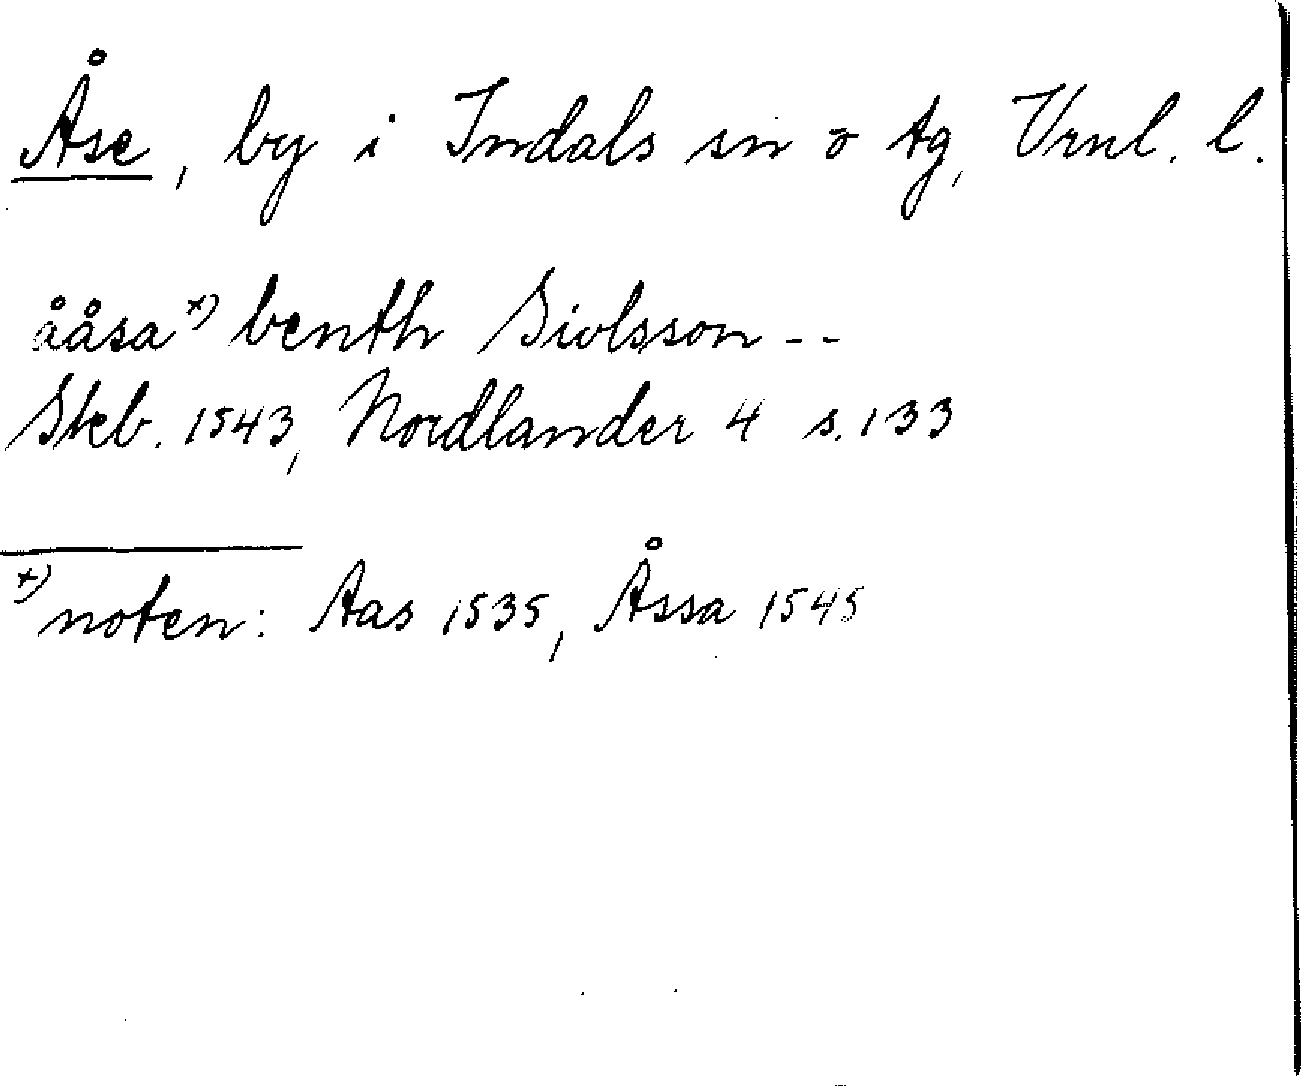 Åse, by i Indals sn o tg, Vrnl. l.
ååsa x) benth Siolsson --
Skb. 1543, Nordlander 4 s. 133
x) noten: Aas 1535, Åssa 1545